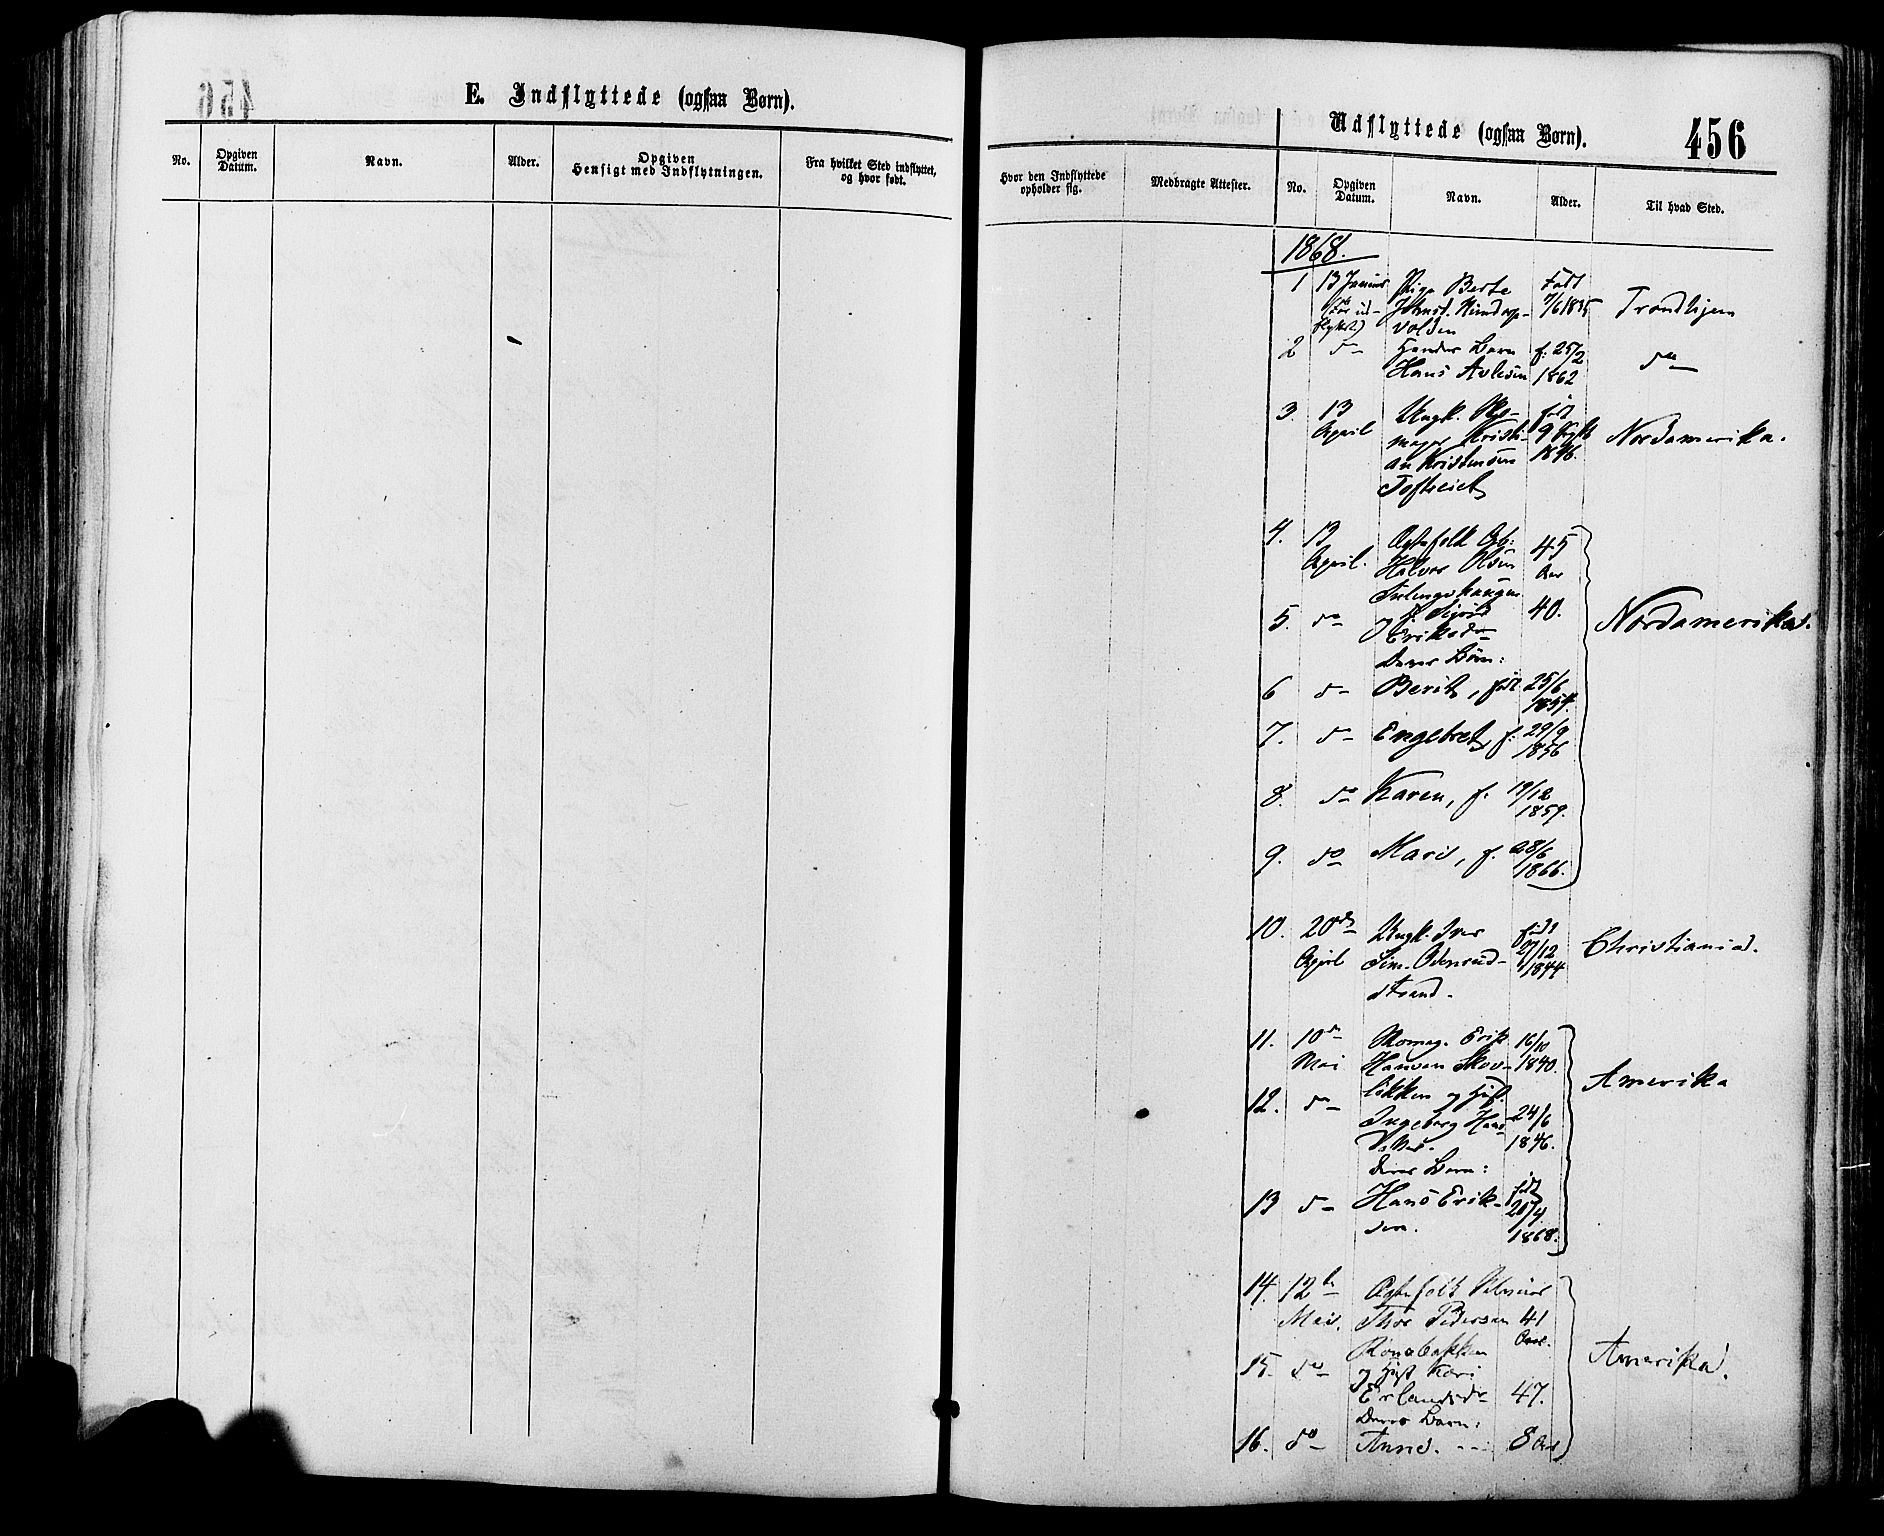 E. Indflyttede (ogsaa Børn).
No.
Opgiven Datum.
Navn.
Alder.
Opgiven Hensigt med Indflytningen.
Fra hvilket Sted indflyttet, og hvor født.
Hvor den Indflyttede opholder sig.
Medbragte Attester.
Udflyttede (ogsaa Børn).
456
No.
Opgiven Datum.
Navn.
Alder.
Til hvad Sted.
1868.
1 13 Pige Berte Født
7/6 1835 Trondhjem
volden
2 do Hendes Barn f. 25/2
Hans 1862 do
3. 13 Ungk. Sko- født
April mager Kristi- 9 Nordamerika.
an Kristensen 1846.
4. 13 Ægtefolk
April. Halvor Olsen 45 Aar
5. do og Sigrid 40. Nordamerika.
Eriksdr
Deres Børn:
6 do Berit, født 25/6
1854.
7. do Engebret, f. 29/9
1856
8. do Karen, f. 19/12
1859.
9. do Mari, f. 28/6
1866.
10. 20de Ungk. Iver født
April Sim. 27/12 Christiania.
strand. 1844
11. 10de Skomag. Erik 16/10
Mai Hansen Skov- 1840. Amerika
12. do løkken og Hust.
Ingeborg Hans- 24/6
1846.
Deres Barn:
13 do Hans Erik- født
sen. 20/4
1868.
14. 12te Ægtefolk
Mai. Thor Pedersen 41
Aar.
15. do og Hust Kari Amerika.
Erlandsdr 47.
Deres Barn:
16. do Anne. 8 Aar